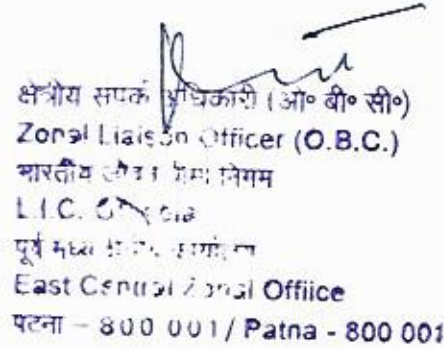 क्षेत्रीय संपर्क अधिकारी (ओ० बी० सी०)
Zonal Liaison Officer (O.B.C.)
भारतीय जीवन बीमा निगम
L.I.C. Of India
पूर्व मध्य क्षेत्रीय कार्यालय
East Central Zonal Offiice
पटना – 800 001/ Patna - 800 001